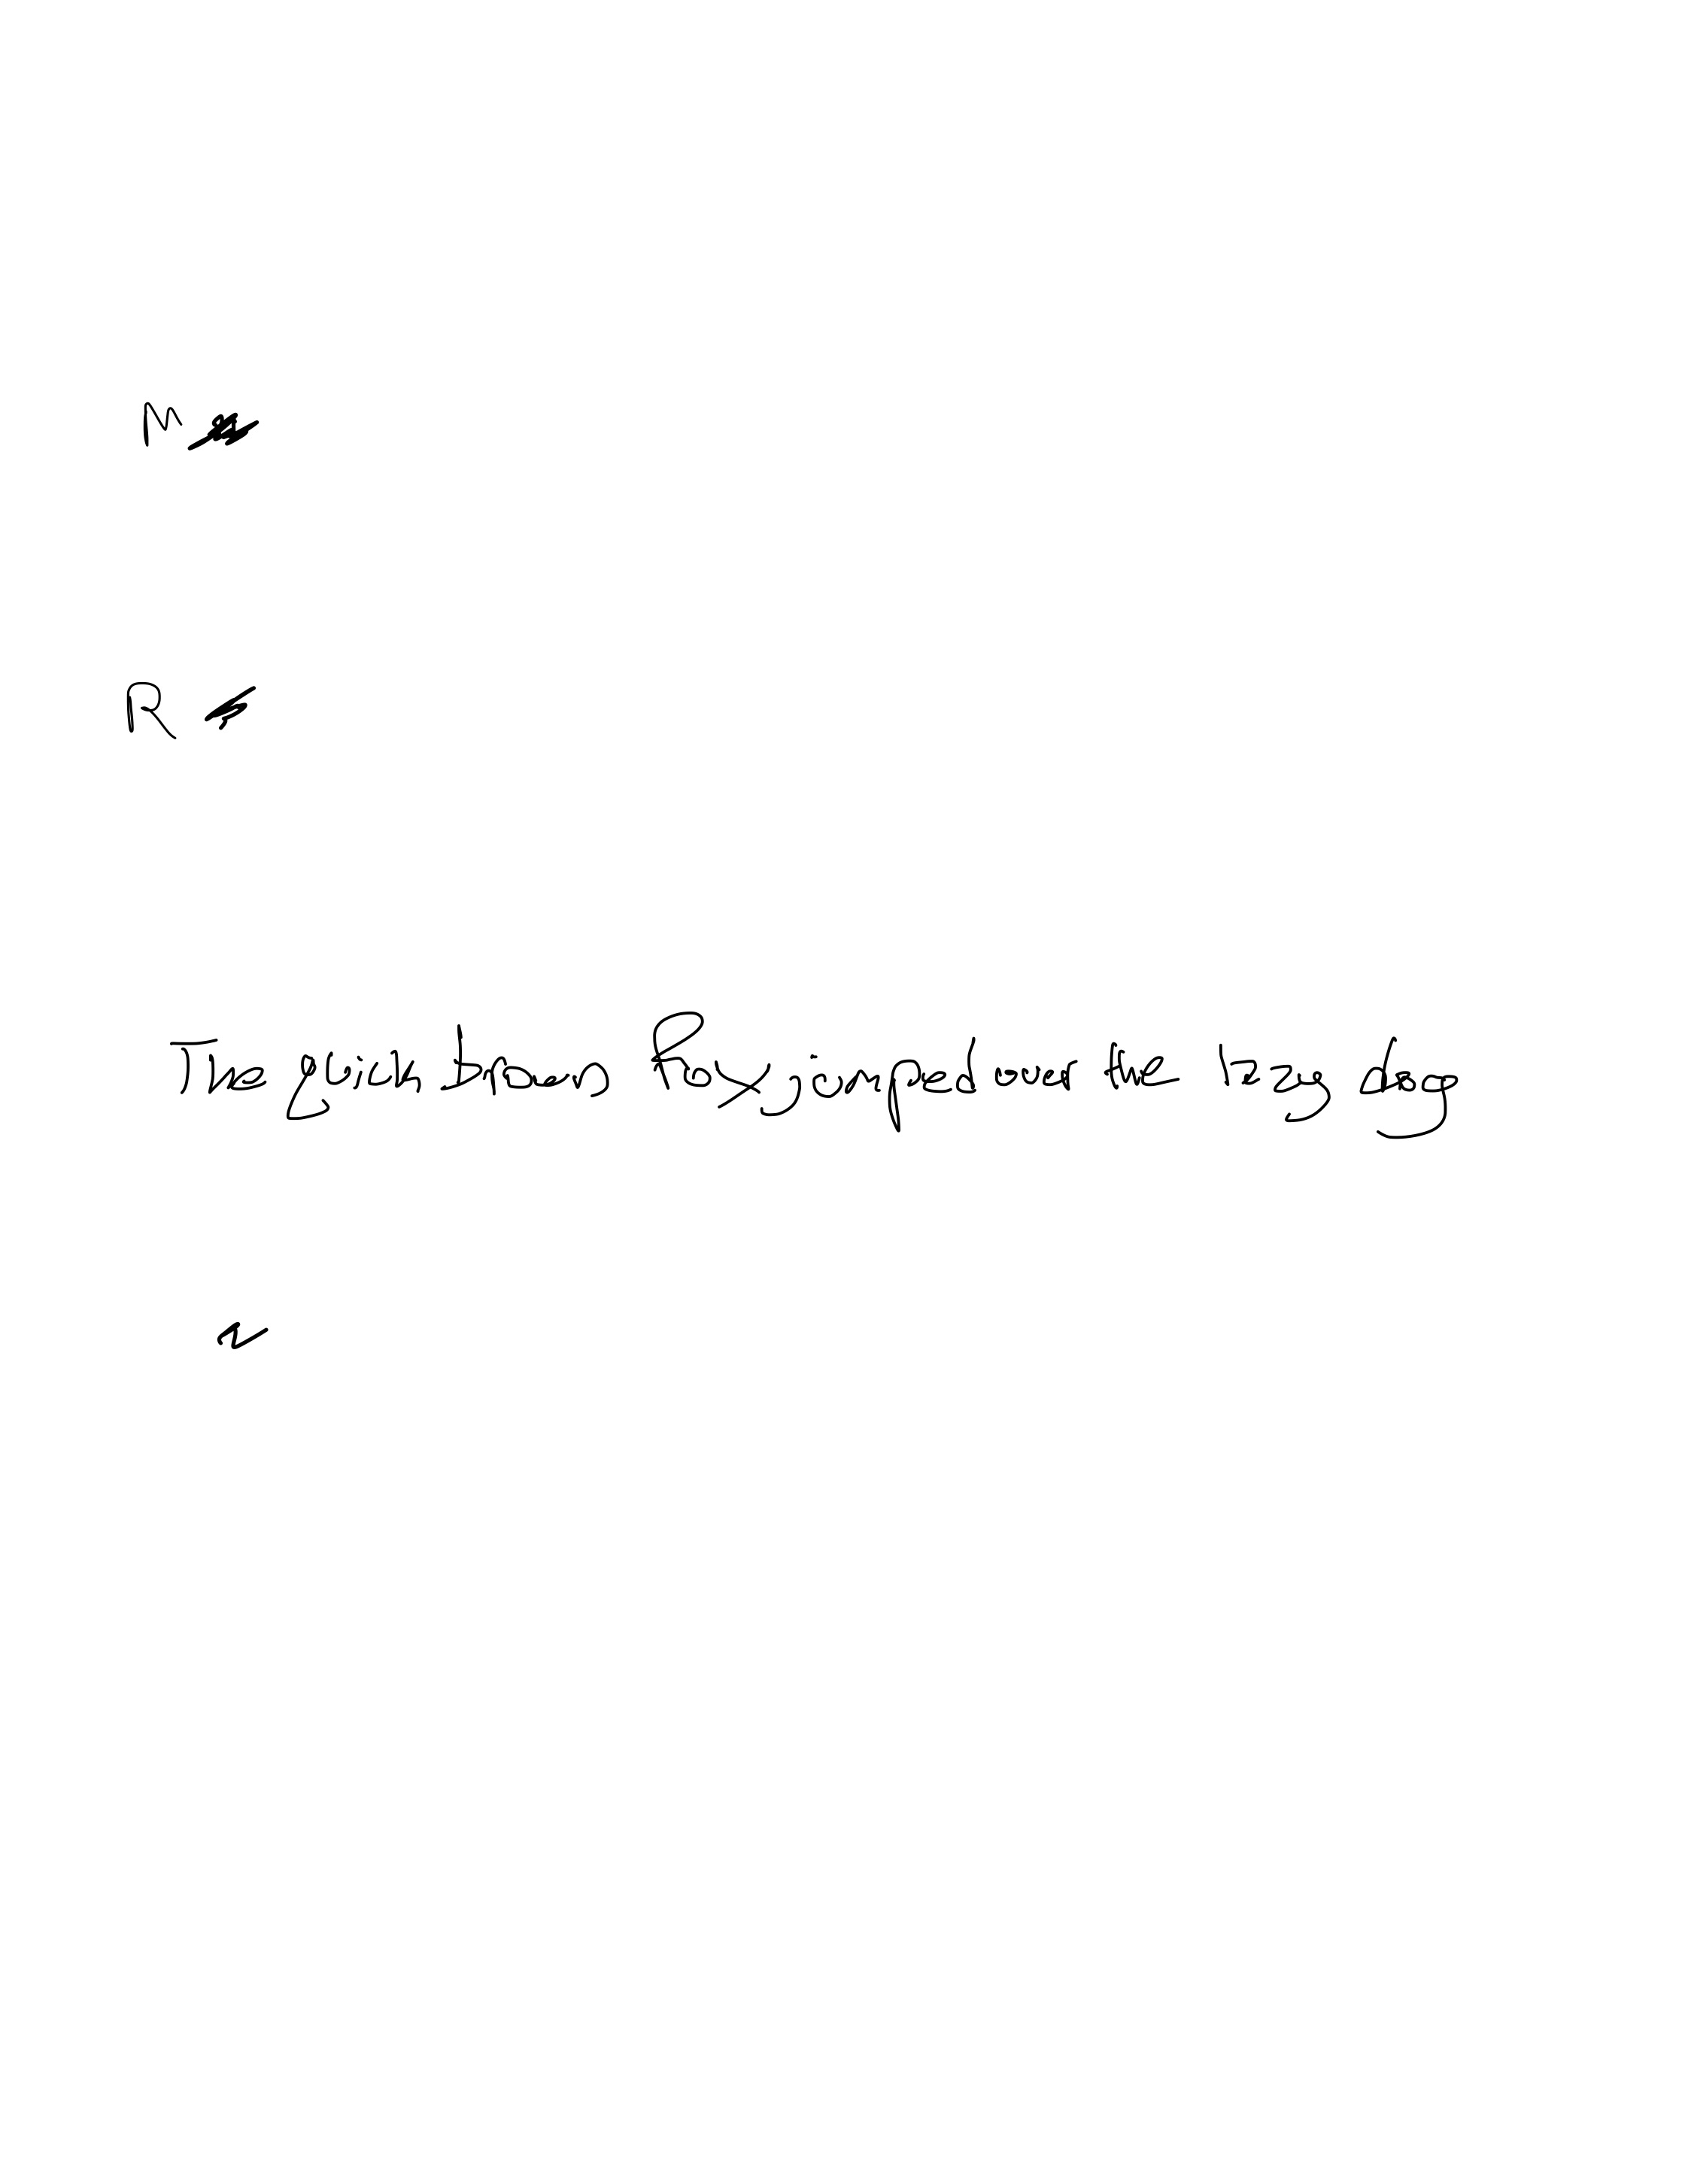 M
R
The quick brown Fox jumped over the lazy dog